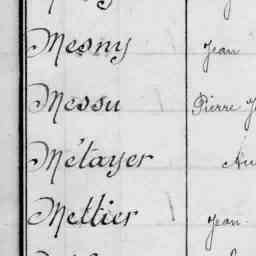 Mesny Jean
Messu Pierre
Métayer
Mettier Jean